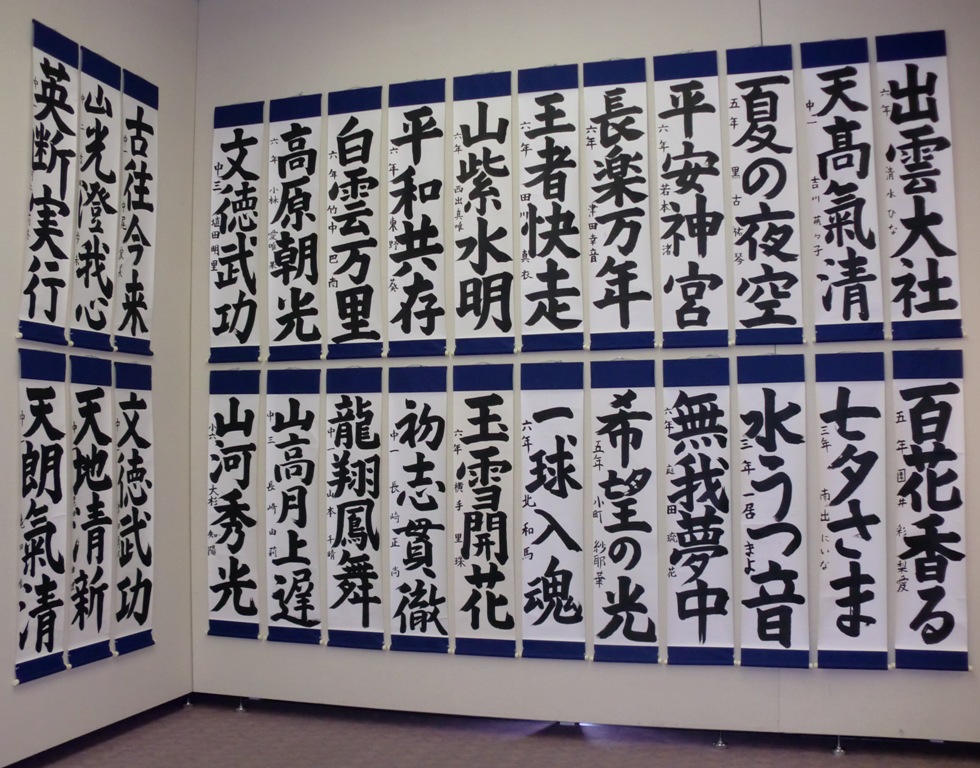 出雲大社
六年 清水ひな
天髙氣清
中一 吉川
夏の夜空
五年 黒古 祐琴
平安神宮
六年 若本 渚
長楽万年
六年 津田幸音
王者快走
六年 田川真衣
山紫水明
六年 西出真唯
平和共存
六年 東野葵
白雲万里
六年 竹中
高原朝光
六年 小林
文徳武功
中三 植田明里
古往今来
山光澄我心
英断実行
百花香る
五年 彩梨愛
七夕さま
三年 南出にいな
水うつ音
三年 一居まよ
無我夢中
六年 庭田 琉花
希望の光
五年 小町 紗耶華
一球入魂
六年 北和馬
玉雪開花
六年 横手里珠
初志貫徹
中一 長崎正尚
龍翔鳳舞
中一 山本千晴
山高月上遅
中三 長崎由莉
山河秀光
小六 大杉
文徳武功
天地清新
天朗氣清